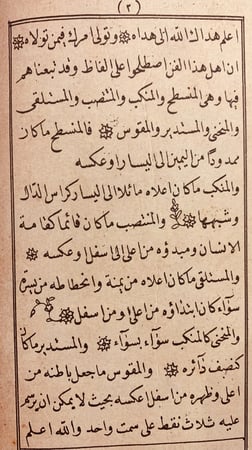 (٣)
اعلم هداك الله الى هداه وتولى امرك فيمن تولاه
ان اهل هذا الفن اصطلحوا على الفاظ وقد تبعناهم
فيها وهى المنسطح والمنكب والمنتصب والمستلقى
والمنحنى والمستدير والمقوس فالمنسطح ما كان
ممدودًا من اليمين الى اليسار او عكسه
والمنكب ما كان اعلاه مائلا الى اليسار كراس الدال
وشبهها والمنتصب ما كان قائما كقامة
الانسان ومبدؤه من اعلى الى سفل وعكسه
والمستلقى ما كان اعلاه من يمنة وانحطاطه من يسرة
سوآء كان ابتداؤه من اعلى او من اسفل
والمنحنى كالمنكب سوآء بسوآء والمستدير ما كان
كنصف دآئرة والمقوس ما جعل باطنه من
اعلى وظهره من اسفل او عكسه بحيث لا يمكن ان يرسم
عليه ثلاث نقط على سمت واحد والله اعلم